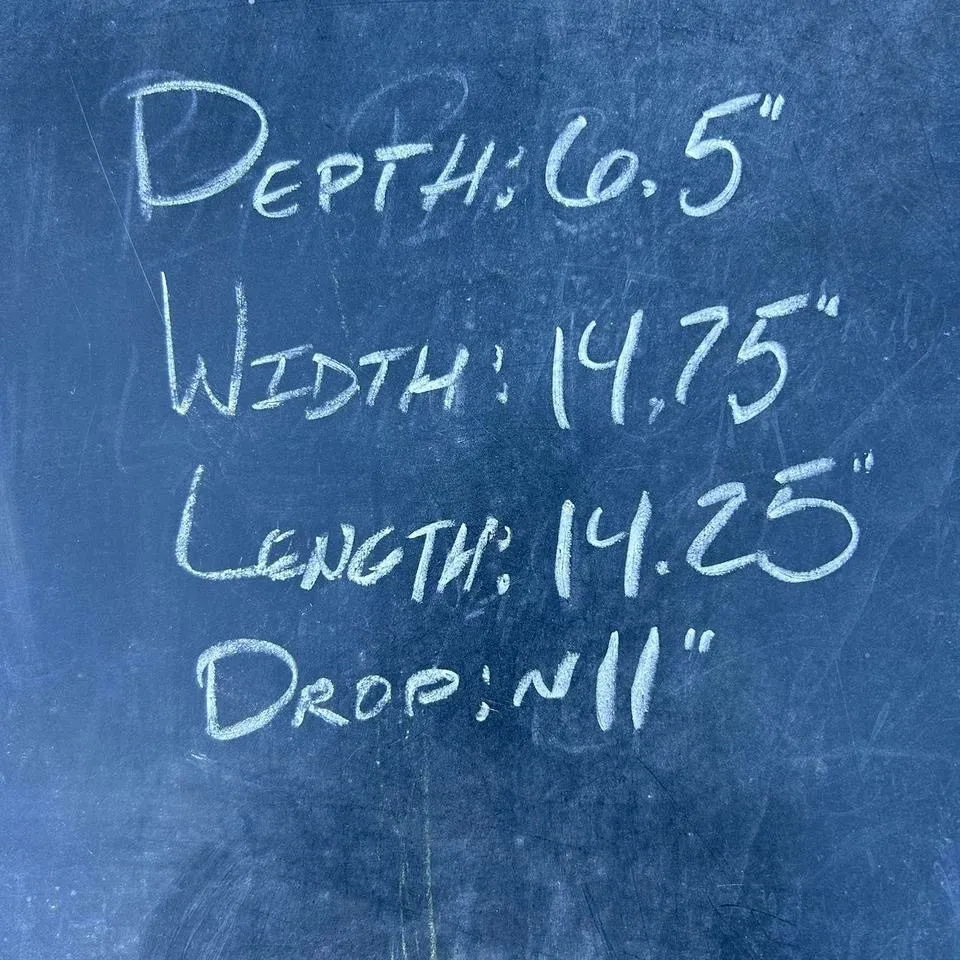 DEPTH: 6.5"
WIDTH: 14.75"
LENGTH: 14.25"
DROP: ~11"